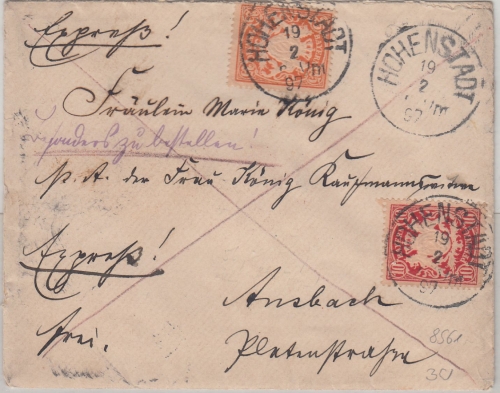 Expreß!
HOHENSTADT
19
2
97
HOHENSTADT
19
2
Nm
97
Fräulein Marie König
sonders zu bestellen!
p. A. der Frau König Kaufmannswitwe
Expreß!
HOHENSTADT
19
2
97
10
10
frei.
Ansbach
Platenstraße
8561